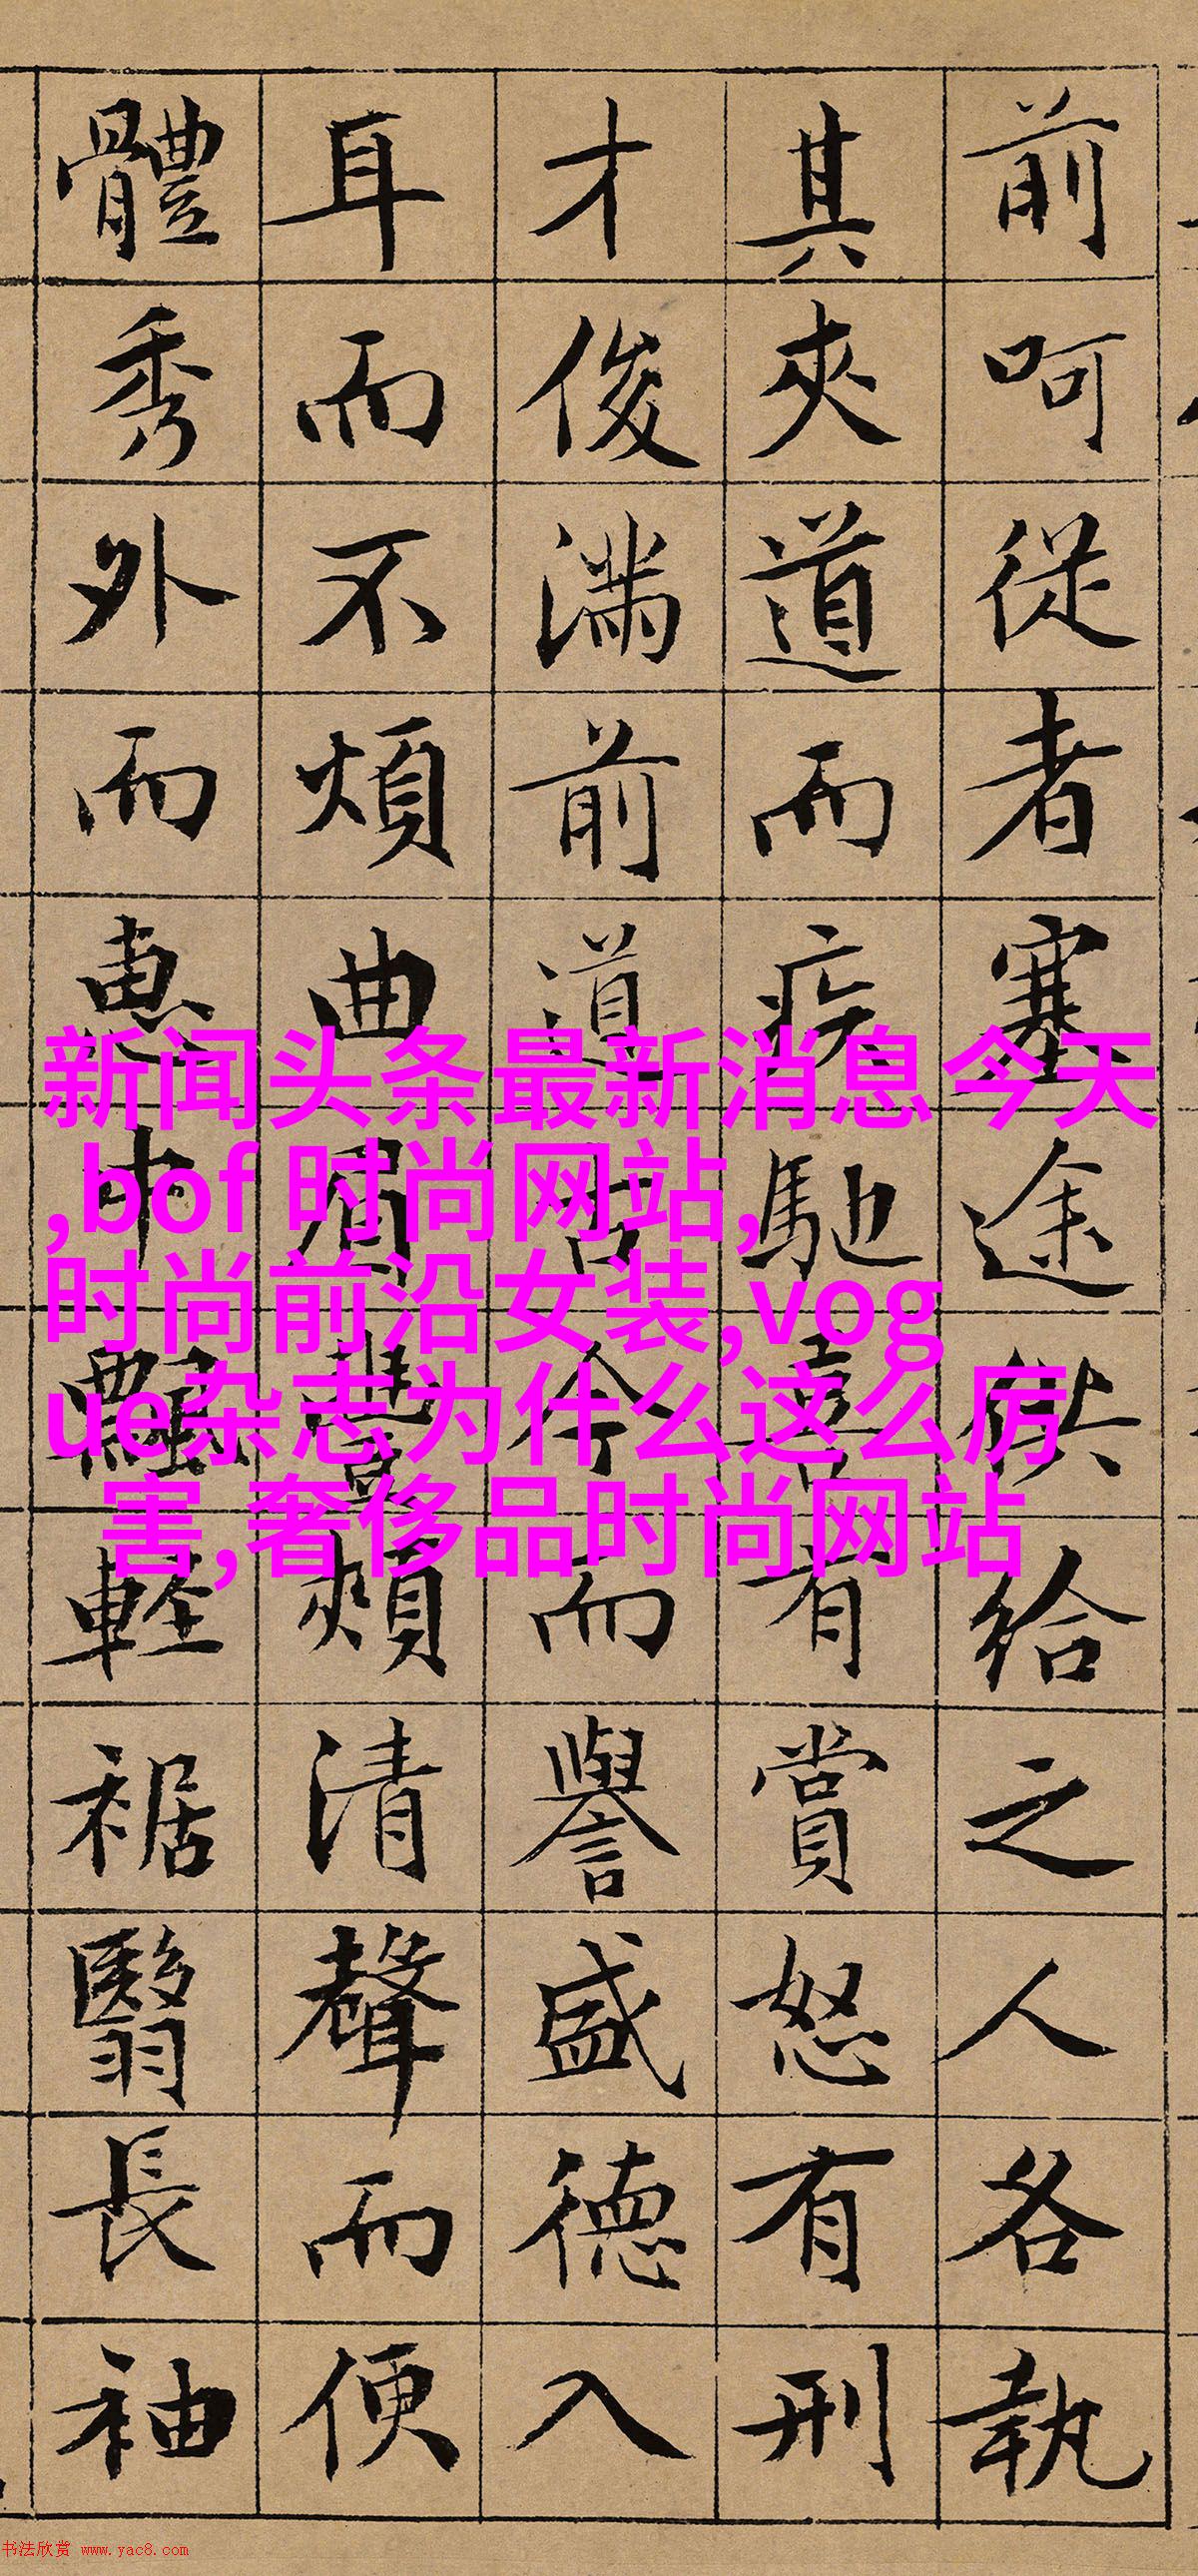 前呵從者塞途供給之人各執
其夾道而疾馳喜有賞怒有刑
才俊滿前道古今而譽盛德入
耳而不煩曲眉豐頰清聲而便
體秀外而惠中飄輕裾翳長袖
新闻头条最新消息 今天
,bof 时尚网站,
时尚前沿女装,vog
ue杂志为什么这么厉
害,奢侈品时尚网站
书法欣赏 www.yac8.com